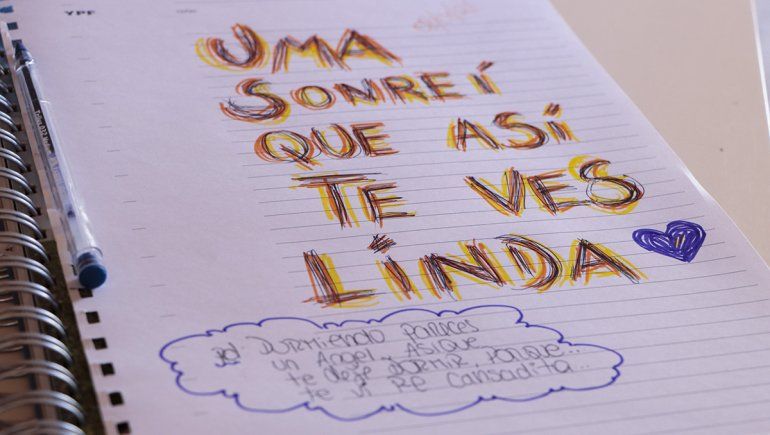 YPF
UMA
SONREÍ
QUE ASÍ
TE VES
LINDA
pd DURMIENDO PARECES
UN ANGEL, ASIQUE
te deje DORMIR, PORQUE...
te vi Re cansadita...